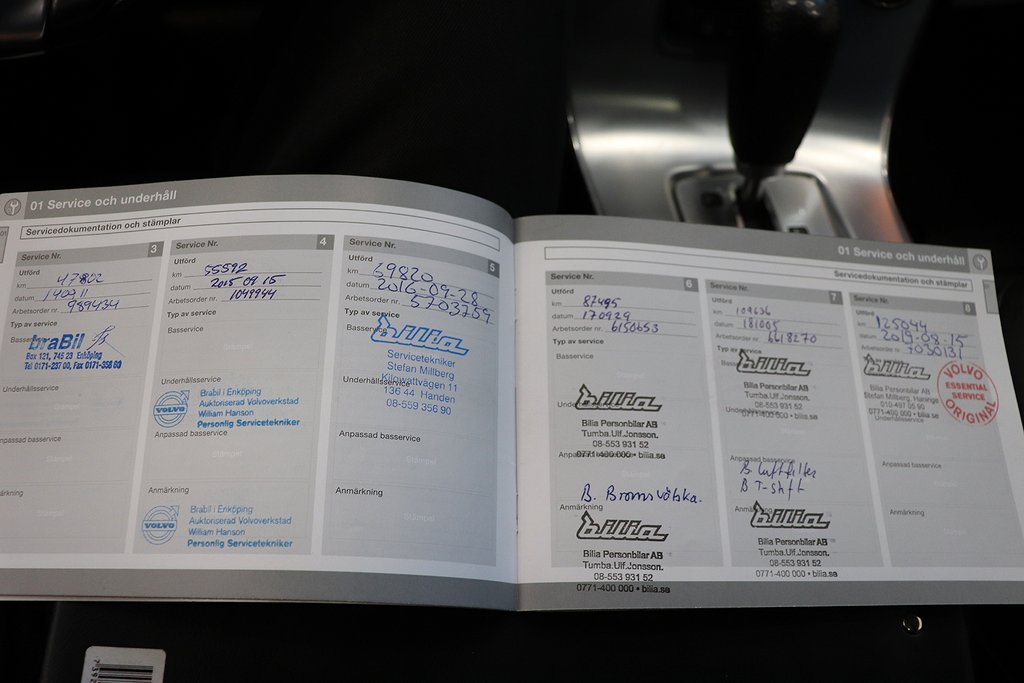 01 Service och underhåll
Servicedokumentation och stämplar
Service Nr. 3
Utförd
km 47802
datum 140911
Arbetsorder nr. 989434
Typ av service
BraBil
Box 121, 745 23 Enköping
Tel 0171-237 00, Fax 0171-358 60
Underhållsservice
Anpassad basservice
Anmärkning
Service Nr. 4
Utförd
km 55592
datum 2015 09 15
Arbetsorder nr. 1049944
Typ av service
Basservice
Stämpel
Underhållsservice
VOLVO
Brabil i Enköping
Auktoriserad Volvoverkstad
William Hanson
Personlig Servicetekniker
Anpassad basservice
Stämpel
Anmärkning
VOLVO
Brabil i Enköping
Auktoriserad Volvoverkstad
William Hanson
Personlig Servicetekniker
Service Nr. 5
Utförd
km 69820
datum 2016-09-28
Arbetsorder nr. 5703759
Typ av service
Basservice
bilia
Servicetekniker
Stefan Millberg
Kilowattvägen 11
Underhållsservice
136 44 Handen
08-559 356 90
Anpassad basservice
Stämpel
Anmärkning
Stämpel
01 Service och underhåll
Servicedokumentation och stämplar
Service Nr. 6
Utförd
km 87495
datum 170929
Arbetsorder nr. 6150653
Typ av service
Basservice
bilia
Bilia Personbilar AB
Tumba.Ulf.Jonsson.
08-553 931 52
0771-400 000 • bilia.se
B. Bromsvätska.
Anmärkning
bilia
Bilia Personbilar AB
Tumba.Ulf.Jonsson.
08-553 931 52
0771-400 000 • bilia.se
Service Nr. 7
Utförd
km 109636
datum 181005
Arbetsorder nr. 6618270
Typ av service
bilia
Bilia Personbilar AB
Tumba.Ulf.Jonsson.
08-553 931 52
0771-400 000 • bilia.se
Anpassad basservice
B. luftfilter
B T-shft
bilia
Bilia Personbilar AB
Tumba.Ulf.Jonsson.
08-553 931 52
0771-400 000 • bilia.se
Service Nr. 8
Utförd
km 125044
datum 2019-08-15
Arbetsorder nr. 7030131
bilia
Bilia Personbilar AB
Stefan Millberg, Haninge
010-497 05 90
0771-400 000 • bilia.se
Underhållsservice
VOLVO
ESSENTIAL
SERVICE
ORIGINAL
Anpassad basservice
Anmärkning